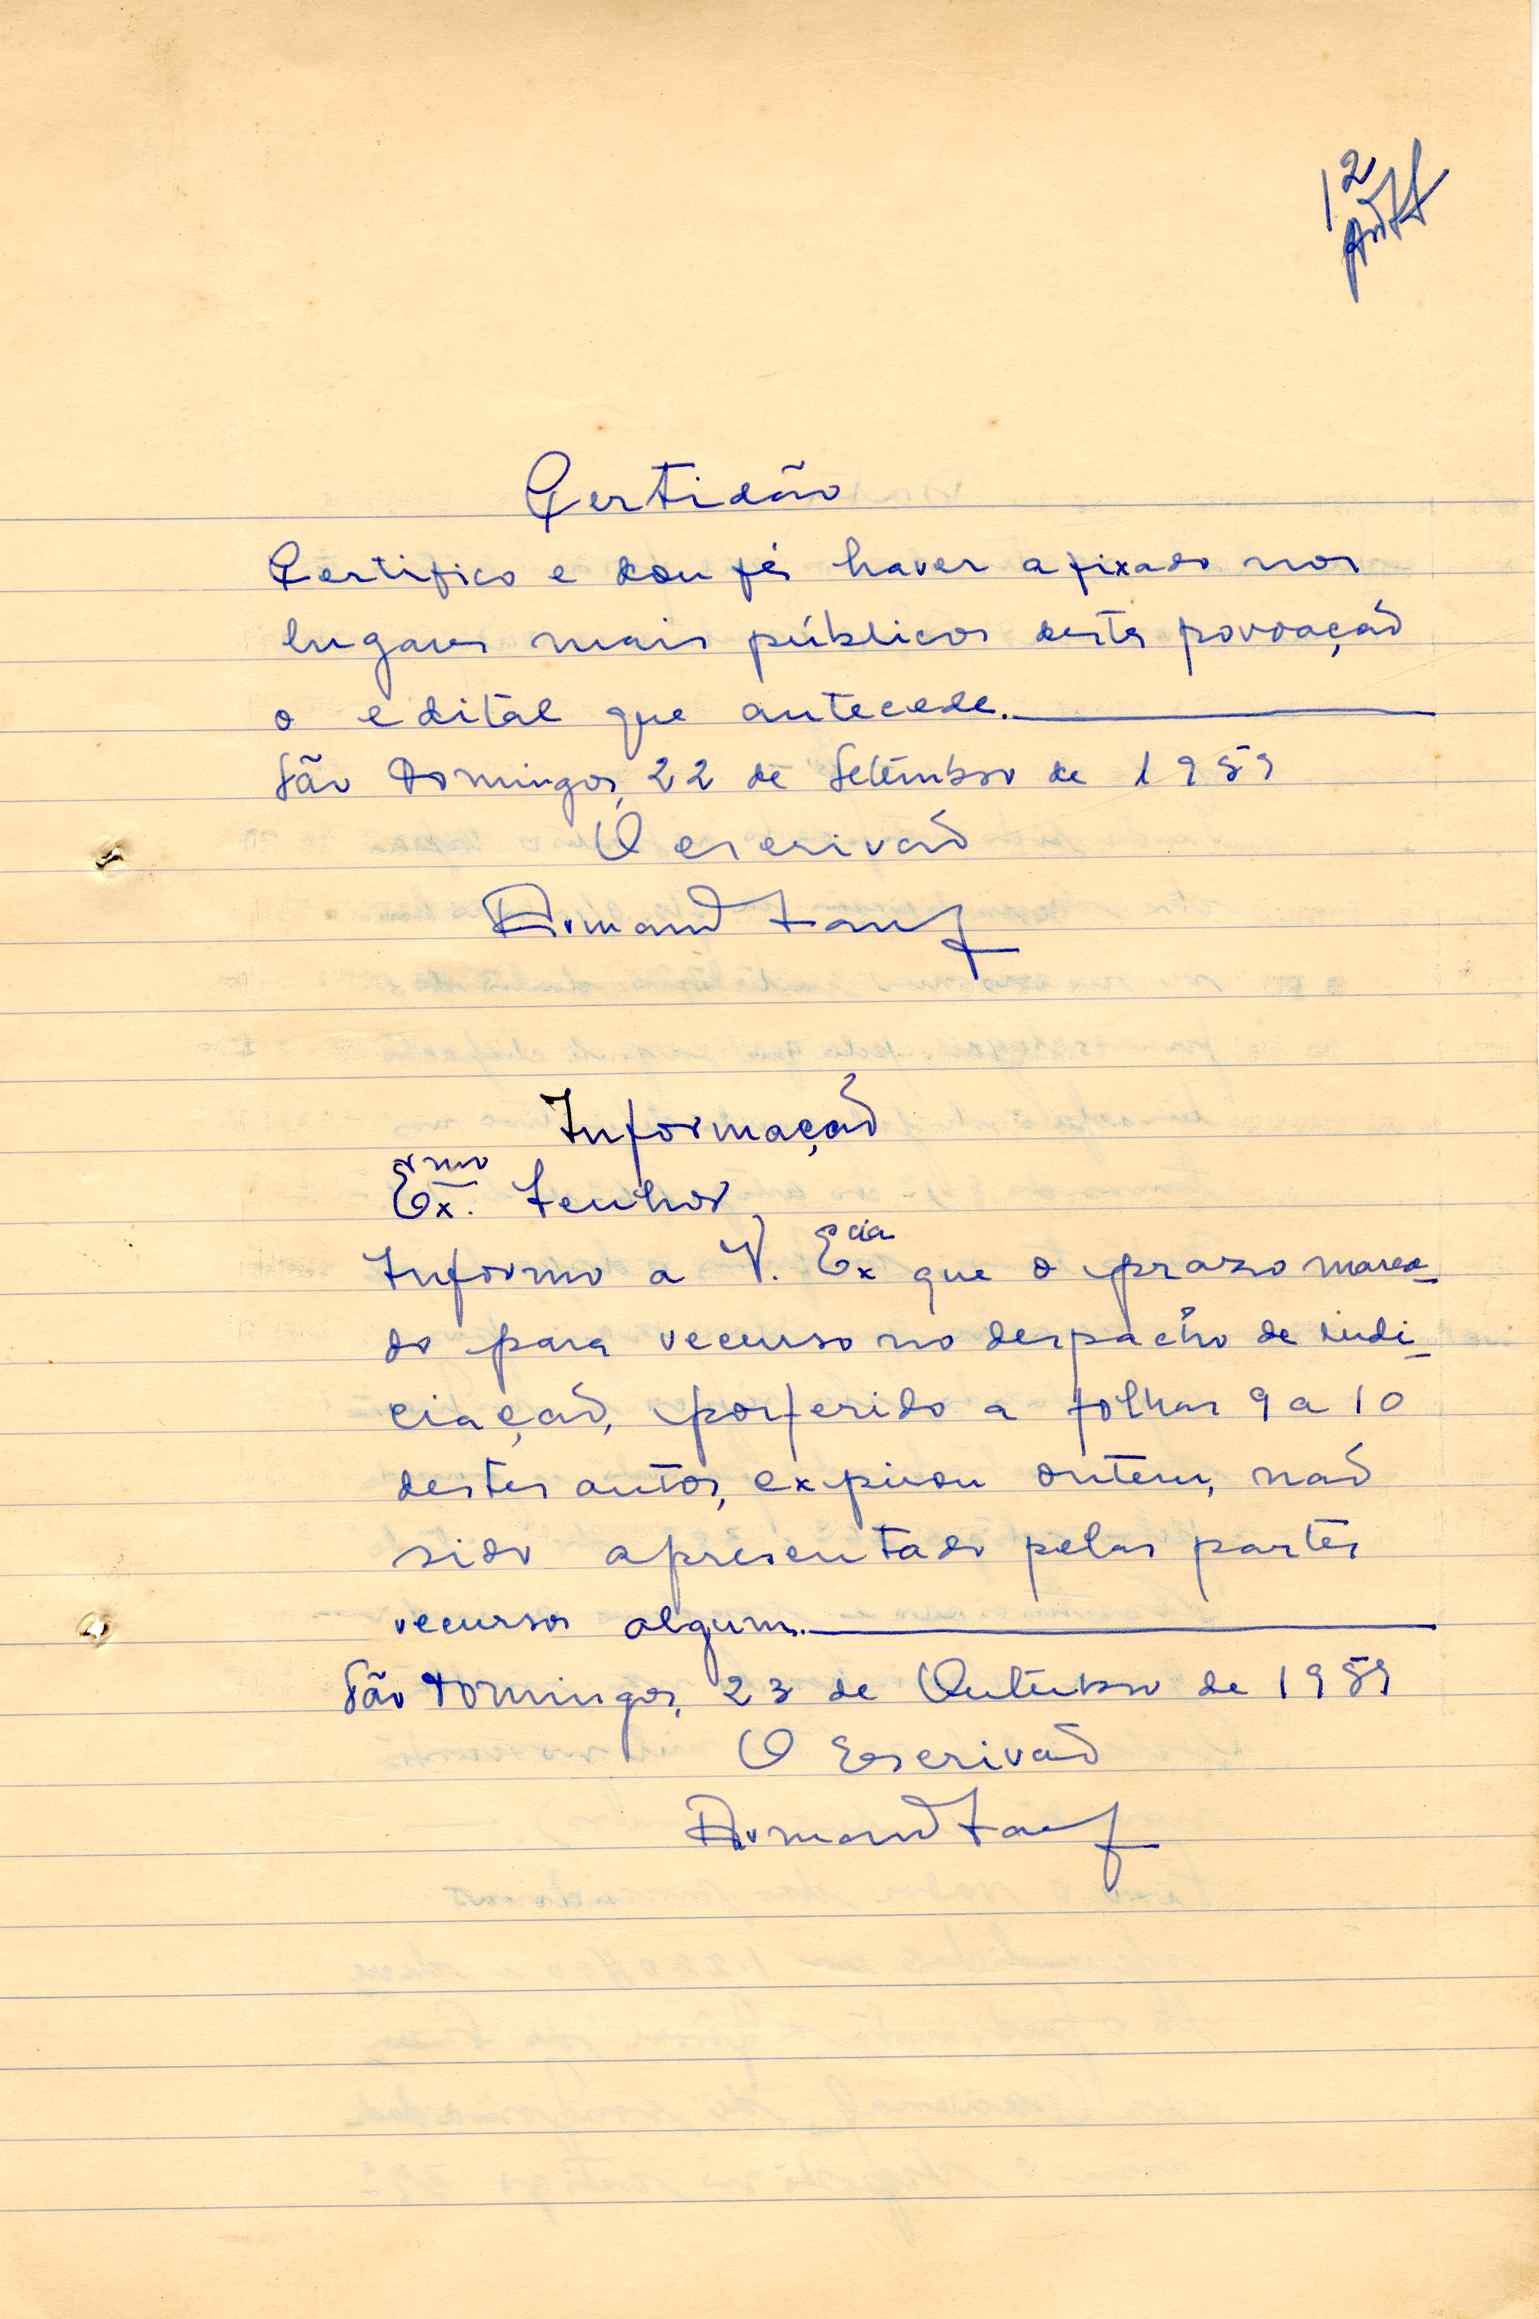 12
Certidão
Certifico e dou fé, haver afixado nos
lugares mais públicos desta povoação
o edital que antecede.
São Domingos, 22 de Setembro de 1959
O escrivão
Armand
Informação
Exmo. Senhor
Informo a V. Excia que o prazo marca-
do para recurso no despacho de indi-
ciação, porferido a folhas 9 a 10
destes autos, expirou ontem, não
sido apresentado pelas partes
recursos algum.
São Domingos, 23 de Outubro de 1959
O Escrivão
Armand